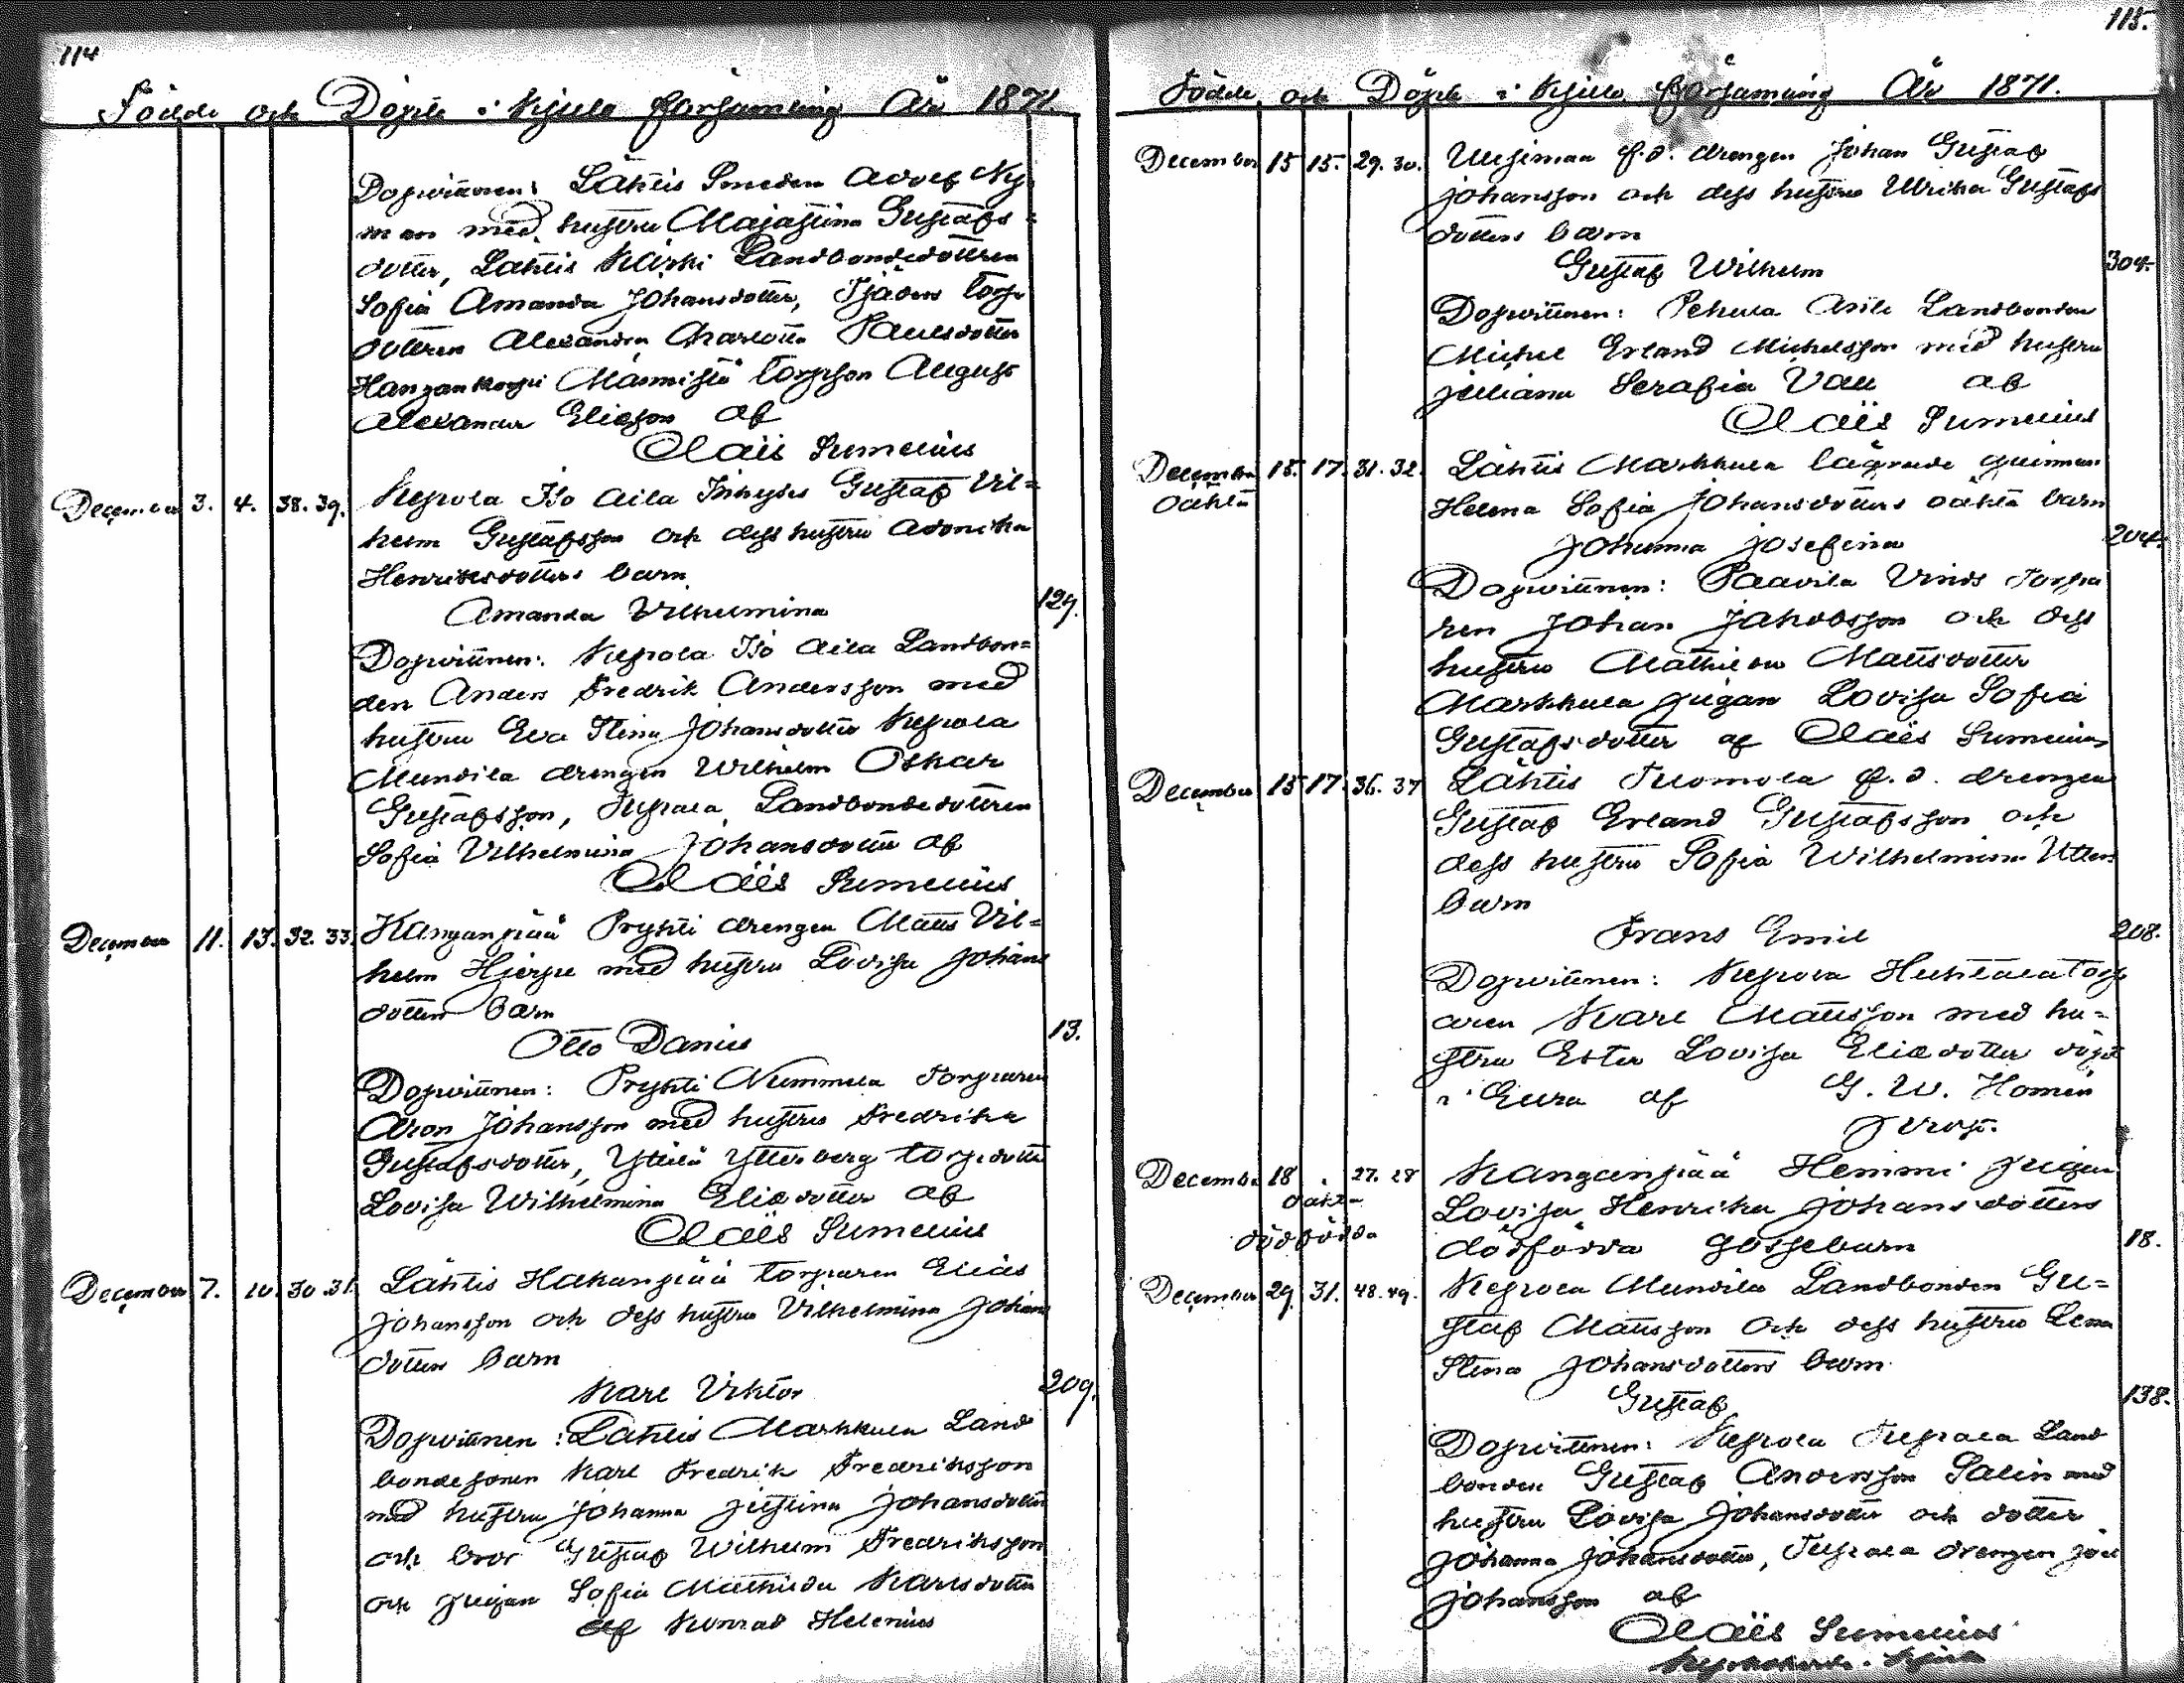 114
Födde och Döpte i Kjulo församling År 1871.
Dopvittnen: Lähtis Smeden Adolf Ny-
man med hustru Majastina Gustafs-
dotter, Lähtis Kärki Landbondedottren
Sofia Amanda Johansdotter, Tjäders torp
dottren Alexandra Charlotta Paulsdotter
Hangankorpi Mannistö torpson August
Alexander Eliasson af
Claës Sumelius
December 3. 4. 38. 39. Kepola Iso Aila Inhyses Gustaf Vil=
helm Gustafsson och dess hustru Adonika
Henriksdotters barn
Amanda Vilhelmina 129.
Dopvittnen: Kepola Iso Aila Landbon=
den Anders Fredrik Andersson med
hustru Eva Stina Johansdotter Kepola
Mundila drengen Wilhelm Oskar
Gustafsson, Landbondedottren
Sofia Vilhelmina Johansdotter af
Claës Sumelius
December 11. 13. 32. 33. Kanganpää Prykti drengen Matts Vil=
helm Hjerpe med hustru Lovisa Johans
dotters barn
Otto Daniel 13.
Dopvittnen: Prykti Nummela Torparen
Aron Johansson med hustru Fredrika
Gustafsdotter, Ytterberg torpdotter
Lovisa Wilhelmina Eliedotter af
Claës Sumelius
December 7. 10. 30. 31. Lähtis Hakanpää torparen Elias
Johansson och dess hustru Vilhelmina Johans
dotters barn
Karl Viktor 209.
Dopvittnen: Lähtis Markkula Land
bondesonen Karl Fredrik Fredriksson
med hustru Johanna Justina Johansdotter
och bror Gustaf Wilhelm Fredriksson
och pigan Sofia Mathilda Karlsdotter
af Konrad Helenius
115.
Födde och Döpte i Kjulo församling År 1871.
December 15 15. 29. 30. Uusimaa f.d. drengen Johan Gustaf
Johansson och dess hustru Ulrika Gustafs
dotters barn
Gustaf Wilhelm 304.
Dopvittnen: Pehula Landbonden
Michel Erland Michelsson med hustru
Juliana Serafia Vall af
Claës Sumelius
December 15. 17. 31. 32. Lähtis Markkula lägrade qvinnan
oäkta Helena Sofia Johansdotters oäkta barn
Johanna Josefina 204.
Dopvittnen: Paavila Torpa
ren Johan Jakobsson och dess
hustru Mathilda Mattsdotter
Markkula pigan Lovisa Sofia
Gustafsdotter af Claës Sumelius
December 15 17. 36. 37 Lähtis Tuomola f.d. drengen
Gustaf Erland Gustafsson och
dess hustru Sofia Wilhelmina Utters
barn
Frans Emil 208.
Dopvittnen: Kepola Huhtala torp
aren Karl Mattsson med hu=
stru Ester Lovisa Eliedotter döpt
i Eura af G. W. Homén
prost.
December 18 27. 28 Kanganpää Hemmi pigan
oäkta Lovisa Henrika Johansdotters
dödfödda dödfödda gossebarn 18.
December 29. 31. 48. 49. Kepola Mundila Landbonden Gu=
staf Mattsson och dess hustru Lena
Stina Johansdotters barn
Gustaf 138.
Dopvittnen: Kepola Land
bonden Gustaf Andersson Salin med
hustru Lovisa Johansdotter och dotter
Johanna Johansdotter, drengen Joel
Johansson af
Claës Sumelius